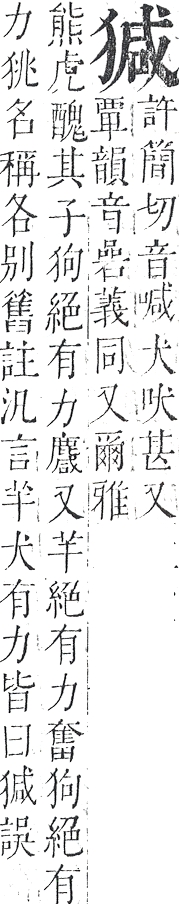 許簡切音喊犬吠甚又
覃韻音義同又爾雅
熊虎醜其子狗絕有力麙又羊絕有力奮狗絕有
力狣名稱各別舊註汎言羊犬有力皆曰誤